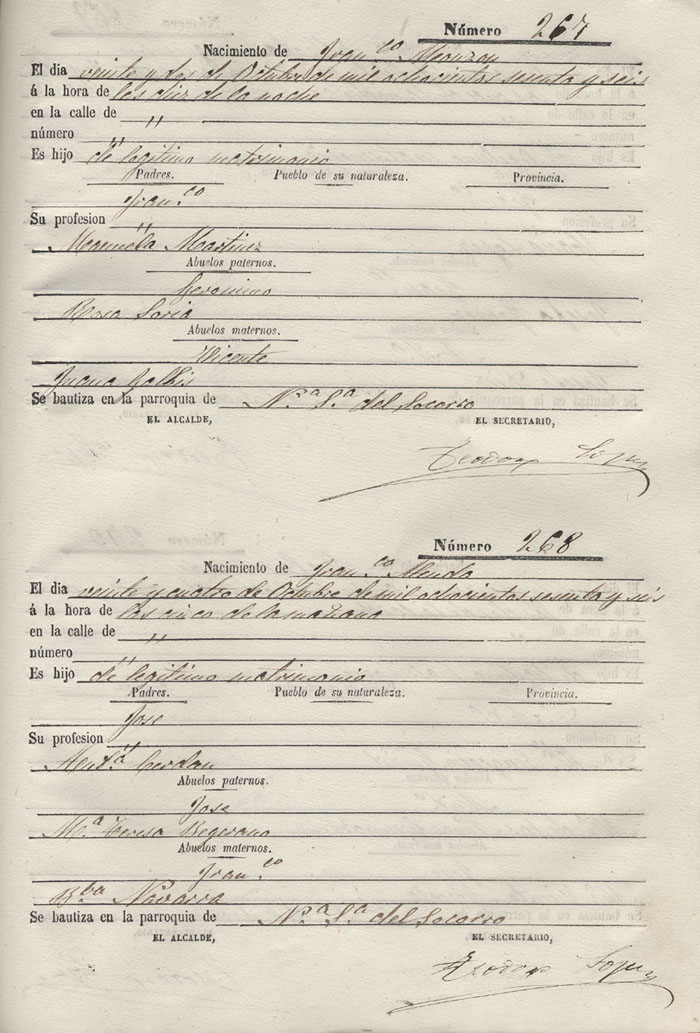 Número 267
Nacimiento de Fran.co Monzon
El dia veinte y dos de Octubre de mil ochocientos sesenta y seis
á la hora de las diez de la noche
en la calle de "
número "
Es hijo de legitimo matrimonio
Padres. Pueblo de su naturaleza. Provincia.
Fran.co
Su profesion "
Manuela Martinez
Abuelos paternos.
Geronimo
Rosa Soria
Abuelos maternos.
Vicente
Juana
Se bautiza en la parroquia de N.a S.a del Socorro
EL ALCALDE, EL SECRETARIO,
Teodoro Lopez
Número 268
Nacimiento de Fran.co Menda
El dia veinte y cuatro de Octubre de mil ochocientos sesenta y seis
á la hora de las cinco de la mañana
en la calle de "
número "
Es hijo de legitimo matrimonio
Padres. Pueblo de su naturaleza. Provincia.
Jose
Su profesion "
Cerdan
Abuelos paternos.
Jose
M.a Teresa
Abuelos maternos.
Fran.co
B.ba Navarra
Se bautiza en la parroquia de N.a S.a del Socorro
EL ALCALDE, EL SECRETARIO,
Teodoro Lopez